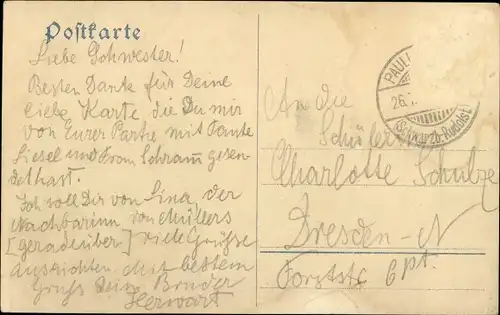 Postkarte
Liebe Schwester!
Besten Dank für Deine
liebe Karte die Du mir
von Eurer Partie mit Tante
Liesel und Schramm gesen-
det hast.
Ich soll Dir von Lina, der
Nachbarinn von Müllers
[geradeüber] viele Grüße
ausrichten. Mit bestem
Gruß Dein Bruder
Herwart
PAULI
26.
(Schwarzb.-Rudolst.
An die
Schülerin
Charlotte Schulze
Dresden-N
Forststr. 6 pt.